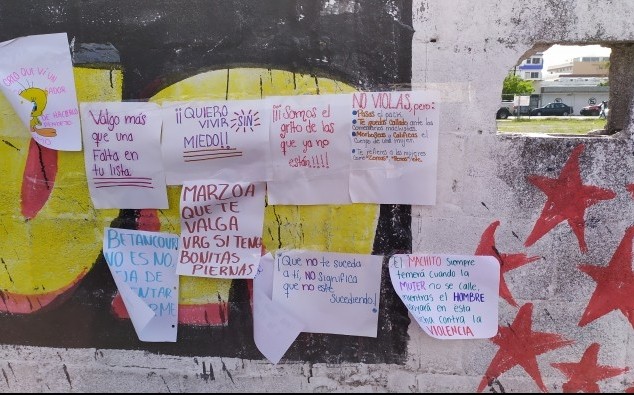 AQUI VIVI
Valgo más
que una
Falta en
tu lista
¡¡QUIERO
VIVIR SIN
MIEDO!!
¡¡¡Somos el
grito de las
que ya no
están!!!!
NO VIOLAS, pero:
Pasas el pack.
Te quedas callado ante los
comentarios machistas
Morboseas y Calificas el
cuerpo de una mujer.
Te refieres a las mujeres
como
MARZOA
QUE TE
VALGA
VRG SI TENGO
BONITAS
PIERNAS
BETANCOUR
NO ES NO,
JA DE
¡Que no te suceda
a ti, NO significa
que no esté
sucediendo!
El MACHITO siempre
temerá cuando la
MUJER no se calle,
mientras el HOMBRE
en esta
contra la
VIOLENCIA